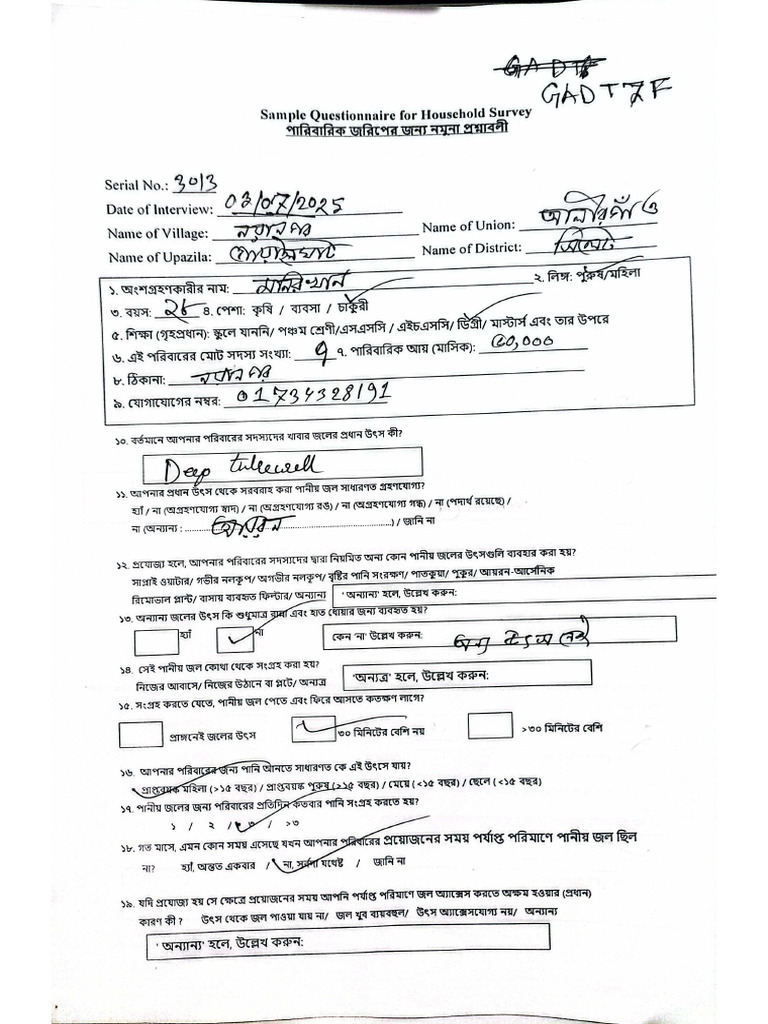 GADTF
GADTZF
Sample Questionnaire for Household Survey
পারিবারিক জরিপের জন্য নমুনা প্রশ্নাবলী
Serial No.: 3013
Date of Interview: 03/07/2025
Name of Village: নয়ানগর Name of Union: আলীরগাঁও
Name of Upazila: গোয়াইনঘাট Name of District: সিলেট
১. অংশগ্রহণকারীর নাম: মনির খান ২. লিঙ্গ: পুরুষ/মহিলা
৩. বয়স: ২৮ ৪. পেশা: কৃষি / ব্যবসা / চাকুরী
৫. শিক্ষা (গৃহপ্রধান): স্কুলে যাননি/ পঞ্চম শ্রেণী/এসএসসি / এইচএসসি/ ডিগ্রী/ মাস্টার্স এবং তার উপরে
৬. এই পরিবারের মোট সদস্য সংখ্যা: ৭ ৭. পারিবারিক আয় (মাসিক): ৫০,০০০
৮. ঠিকানা: নয়ানগর
৯. যোগাযোগের নম্বর: 01734328191
১০. বর্তমানে আপনার পরিবারের সদস্যদের খাবার জলের প্রধান উৎস কী?
Deep tubewell
১১. আপনার প্রধান উৎস থেকে সরবরাহ করা পানীয় জল সাধারণত গ্রহণযোগ্য?
হ্যাঁ / না (অগ্রহণযোগ্য স্বাদ) / না (অগ্রহণযোগ্য রঙ) / না (অগ্রহণযোগ্য গন্ধ) / না (পদার্থ রয়েছে) /
না (অন্যান্য : আয়রন) / জানি না
১২. প্রযোজ্য হলে, আপনার পরিবারের সদস্যদের দ্বারা নিয়মিত অন্য কোন পানীয় জলের উৎসগুলি ব্যবহার করা হয়?
সাপ্লাই ওয়াটার/ গভীর নলকূপ/ অগভীর নলকূপ/ বৃষ্টির পানি সংরক্ষণ/ পাতকুয়া/ পুকুর/ আয়রন-আর্সেনিক
রিমোভাল প্লান্ট/ বাসায় ব্যবহৃত ফিল্টার/ অন্যান্য ' অন্যান্য' হলে, উল্লেখ করুন:
১৩. অন্যান্য জলের উৎস কি শুধুমাত্র রান্না এবং হাত ধোয়ার জন্য ব্যবহৃত হয়?
হ্যাঁ না কেন 'না' উল্লেখ করুন: অন্য উৎস নেই
১৪. সেই পানীয় জল কোথা থেকে সংগ্রহ করা হয়?
নিজের আবাসে/ নিজের উঠানে বা প্লটে/ অন্যত্র 'অন্যত্র' হলে, উল্লেখ করুন:
১৫. সংগ্রহ করতে যেতে, পানীয় জল পেতে এবং ফিরে আসতে কতক্ষণ লাগে?
প্রাঙ্গনেই জলের উৎস ৩০ মিনিটের বেশি নয় >৩০ মিনিটের বেশি
১৬. আপনার পরিবারের জন্য পানি আনতে সাধারণত কে এই উৎসে যায়?
প্রাপ্তবয়স্ক মহিলা (>১৫ বছর) / প্রাপ্তবয়স্ক পুরুষ (>১৫ বছর) / মেয়ে (<১৫ বছর) / ছেলে (<১৫ বছর)
১৭. পানীয় জলের জন্য পরিবারের প্রতিদিন কতবার পানি সংগ্রহ করতে হয়?
১ / ২ / ৩ / >৩
১৮. গত মাসে, এমন কোন সময় এসেছে যখন আপনার পরিবারের প্রয়োজনের সময় পর্যাপ্ত পরিমাণে পানীয় জল ছিল
না? হ্যাঁ, অন্তত একবার / না, সর্বদা যথেষ্ট / জানি না
১৯. যদি প্রযোজ্য হয় সে ক্ষেত্রে প্রয়োজনের সময় আপনি পর্যাপ্ত পরিমাণে জল অ্যাক্সেস করতে অক্ষম হওয়ার (প্রধান)
কারণ কী ? উৎস থেকে জল পাওয়া যায় না/ জল খুব ব্যয়বহুল/ উৎস অ্যাক্সেসযোগ্য নয়/ অন্যান্য
' অন্যান্য' হলে, উল্লেখ করুন: